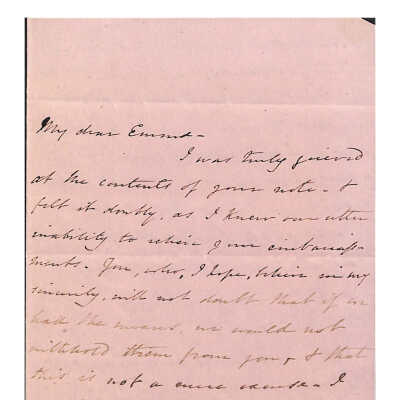 My dear Emma -
I was truly grieved
at the contents of your note - &
felt it doubly, as I knew our utter
inability to relieve your embarrass-
ments. You, who, I hope, believe in my
sincerity, will not doubt that if we
had, the means, we would not
withhold them from you, & that
this is not a mere excuse - I